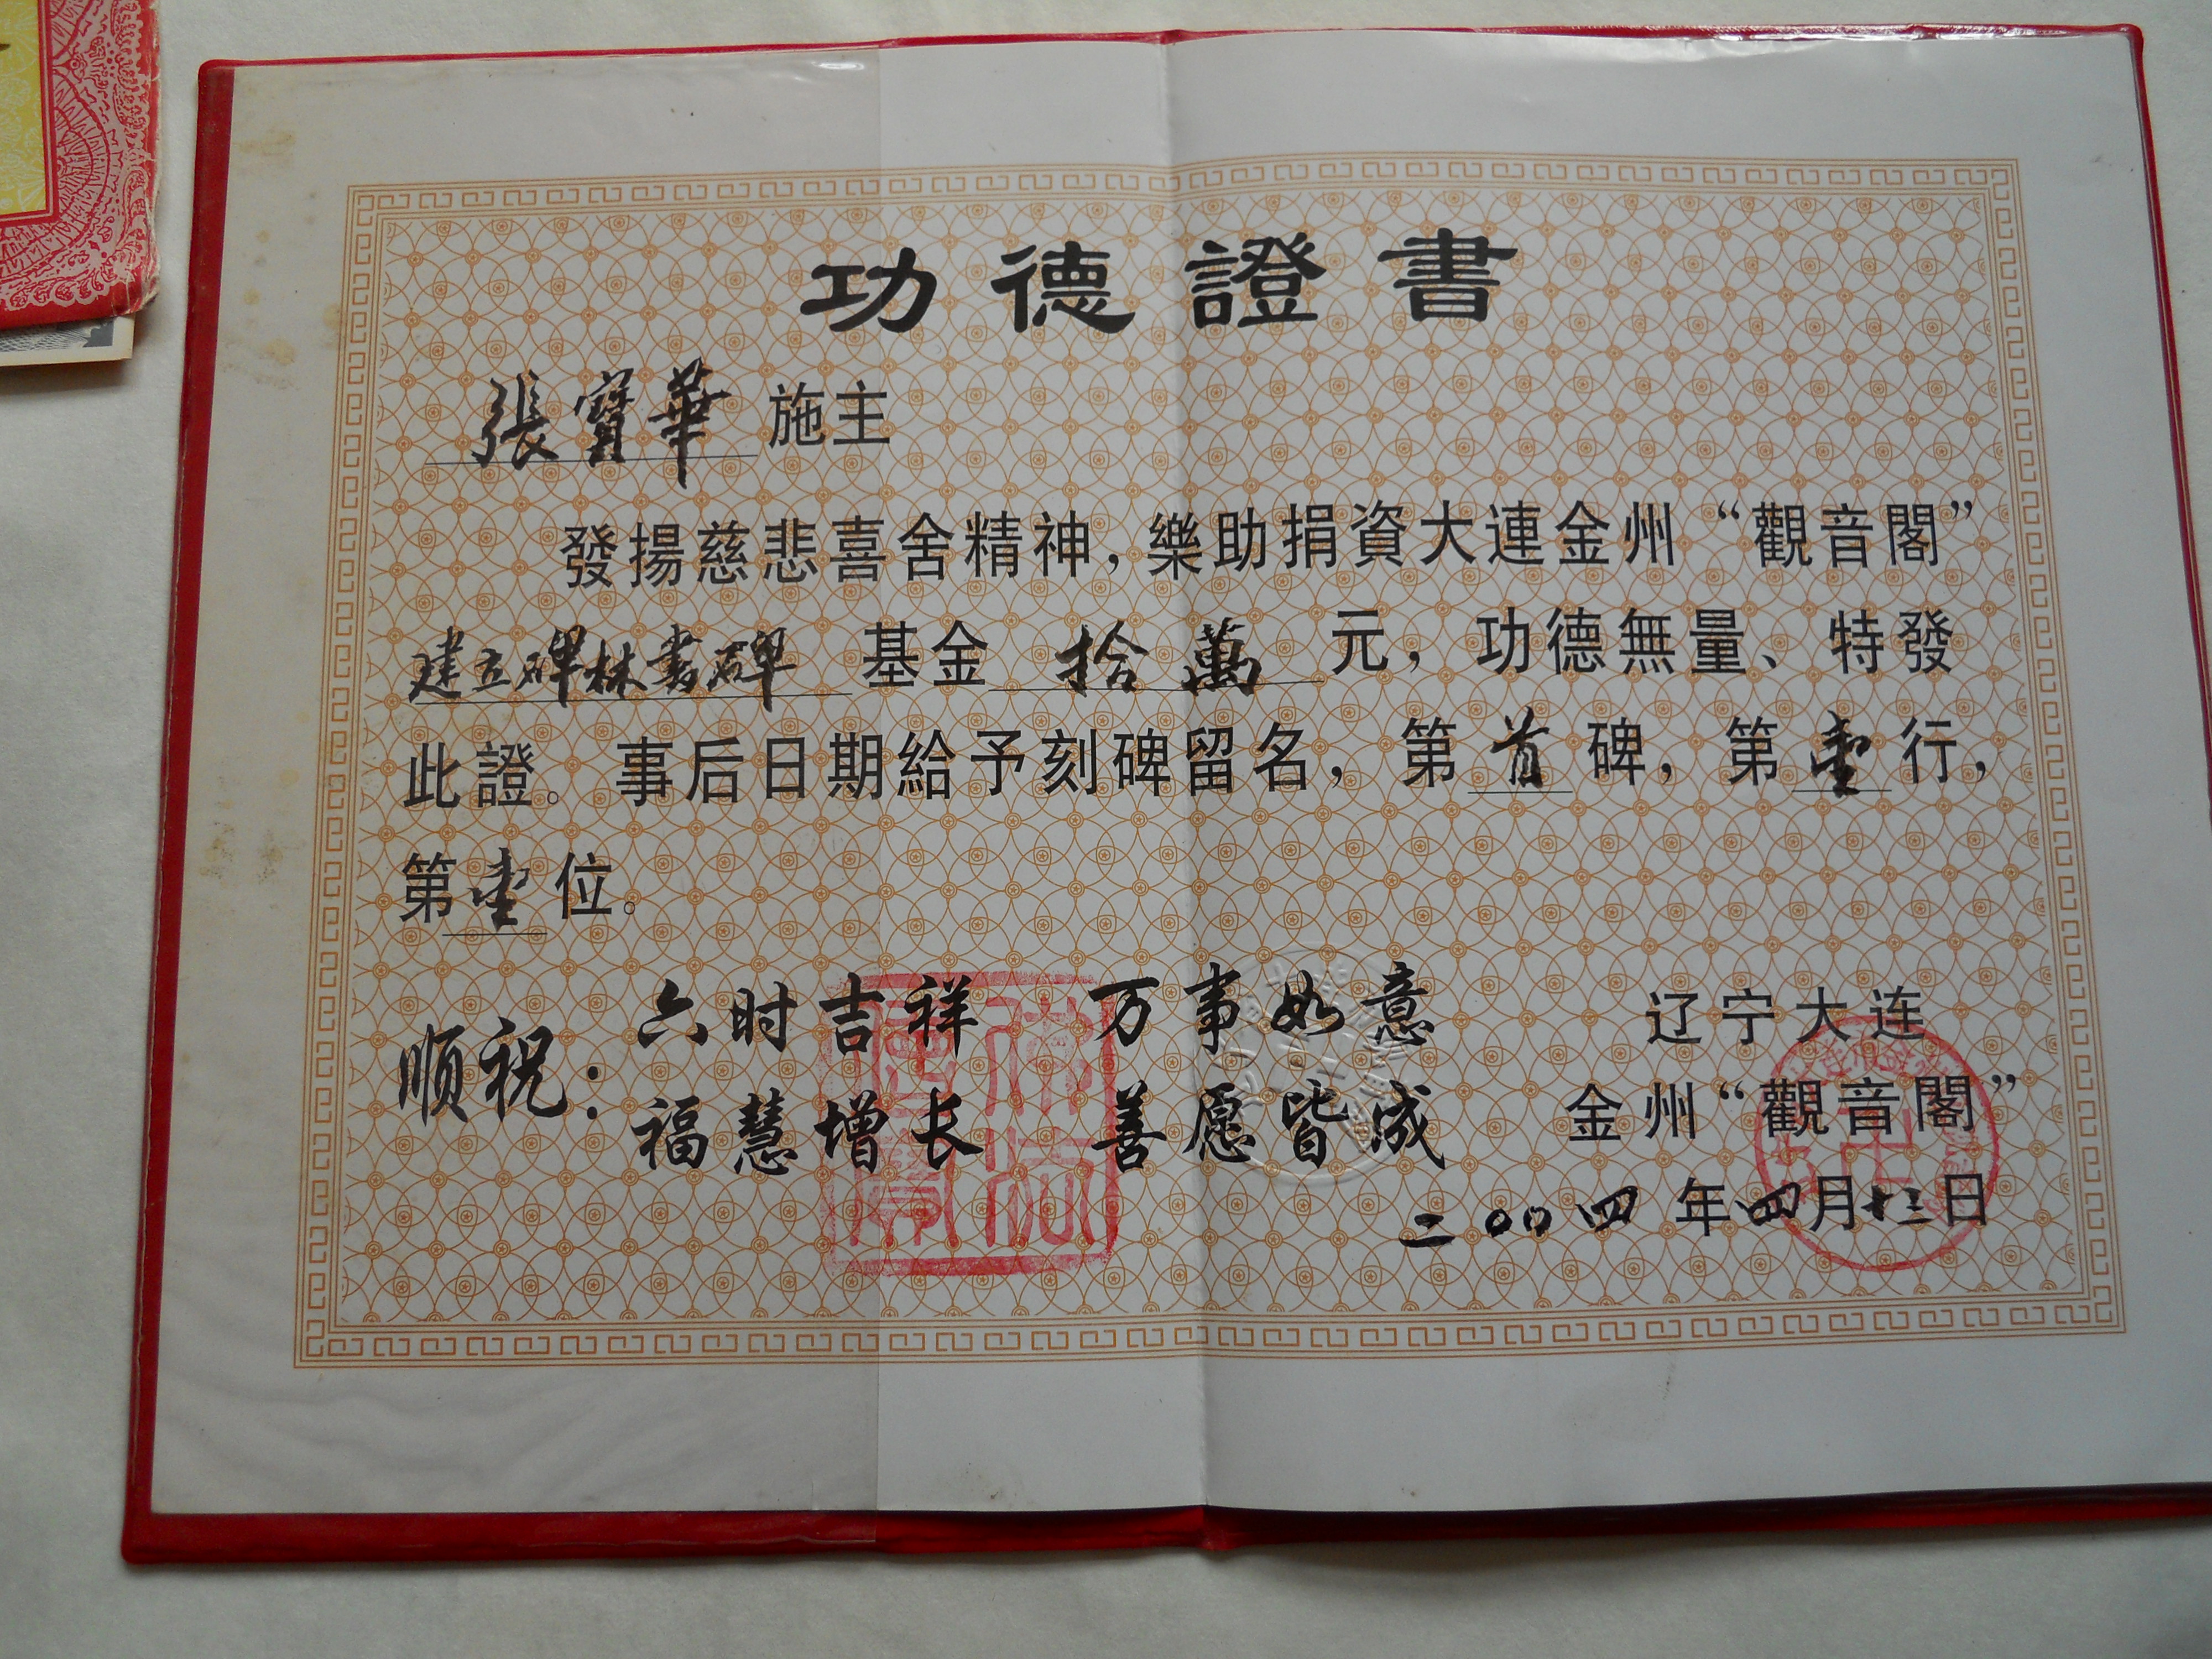 功德證書
張寶華 施主
發揚慈悲喜舍精神，樂助捐資大連金州“觀音閣”
建立碑林書碑 基金 拾萬 元，功德無量、特發
此證。事后日期給予刻碑留名，第 首 碑，第 壹 行，
第 壹 位。
顺祝：
六时吉祥 万事如意
福慧增长 善愿皆成
辽宁大连
金州“觀音閣”
二〇〇四 年 四 月 十三 日